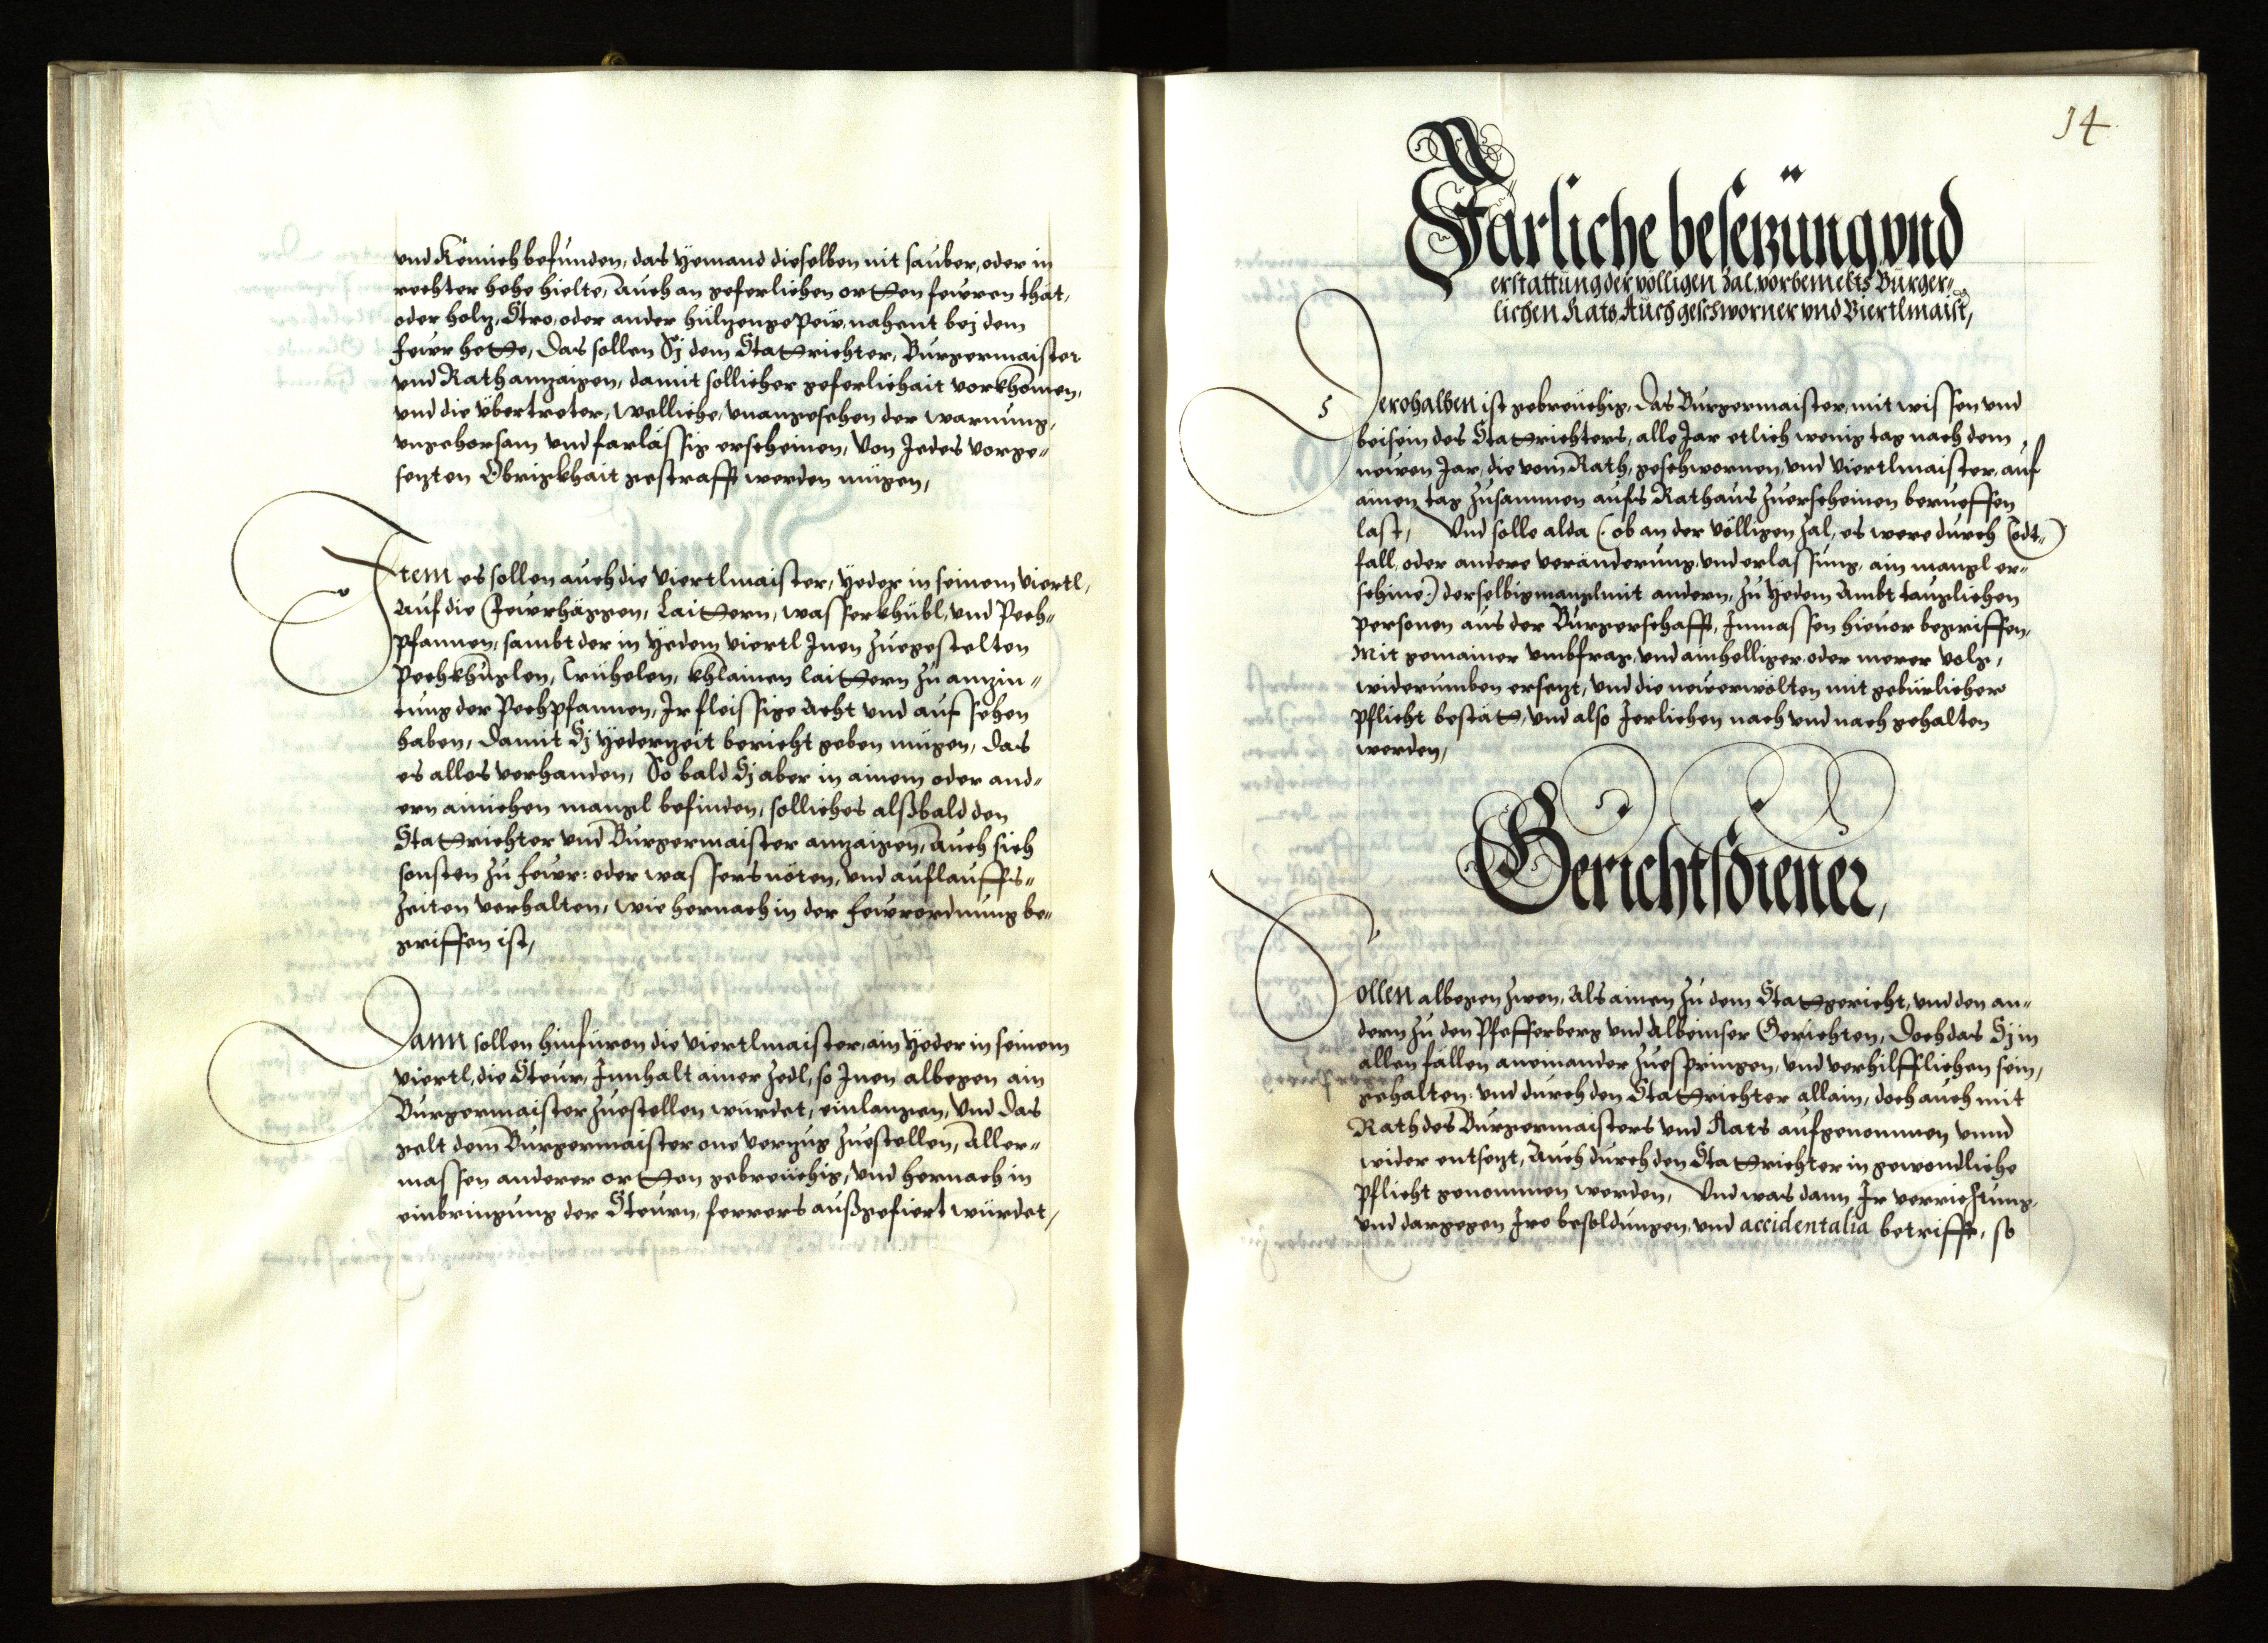 und Kömich befunden, das Yemand dieselben nit sauber, oder in
rechter hehe hielte, Auch an geferlichen ortten fewren thät,
oder holz, Stro, oder ander hülzengepeü, nahent bej dem
fewr hette, Das sollen Sj dem Stattrichter, Burgermaister
und Rath anzaigen, damit sollicher geferlichait vorkhomen,
und die übertreter, welliche, unangesehen der warnung,
ungehorsam und farlässig erscheinen, von Jedes vorge=
sezten Obrigkhait gestrafft werden mügen,
Item es sollen auch die Viertlmaister, Yeder in seinem viertl,
Auf die Fewrhäggen, Laittern, wasserkhübl, und Pech=
pfannen, sambt der in Yedem viertl Inen zuegestelten
Pechkhuglen, Trühelen, khlainen laittern zu anzin=
tung der Pechpfannen, Ir fleissige acht und auf sehen
haben, Damit Sj Yederzeit bericht geben mügen, das
es alles verhanden, So bald Sj aber in ainem oder and=
ern ainichen mangl befinden, solliches alßbald den
Stattrichter und Burgermaister anzaigen, Auch sich
sonsten zu fewr: oder wassersnöten, und auflauffs=
zeiten verhalten, wie hernach in der fewrordnung be=
griffen ist,
Dann sollen hinfüron die Viertlmaister, ain Yeder in seinem
viertl, die Steur, Innhalt ainer Zedl, so Inen albegen ain
Burgermaister zuestellen würdet, einlangen, Und das
gelt dem Burgermaister one verzug zuestellen, Aller=
massen anderer ortten gebreüchig, Und hernach in
einbringung der Steurn, ferrers außgefiert würdet,
14
Järliche besezung und
erstattung der völligen Zal, vorbemelts Burger=
lichen Rats, Auch geschworner und Viertlmaist,
Derohalben ist gebreüchig, Das Burgermaister, mit wissen und
beisein des Stattrichters, alle Jar etlich wenig tag nach dem
newen Jar, die vom Rath, geschwornen, und Viertlmaister, auf
ainen tag zusammen aufs Rathaus zuerscheinen berueffen
last, Und solle alda (: ob an der völligen Zal, es were durch Todt=
fall, oder andere veränderung, und erlassung, ain mangl er=
schine:) derselbig mangl mit andern, zu Yedem Ambt tauglichen
personen aus der Burgerschafft, Inmassen hievor begriffen,
Mit gemainer umbfrag, und ainhelliger, oder merer volg,
widerumben ersezt, und die newerwölten mit gebürlicher
pflicht bestätt, und also Jerlichen nach und nach gehalten
werden,
Gerichtsdiener,
Sollen albegen zwen, als ainen zu dem Stattgericht, und den an=
dern zu den Pfefferberg und Albeinser Gerichten, Doch das Sj in
allen fällen aneinander zuespringen, und verhilfflichen sein,
gehalten: und durch den Stattrichter allain, doch auch mit
Rath des Burgermaisters und Rats aufgenommen unnd
wider entsezt, Auch durch den Stattrichter in gewondliche
pflicht genommen werden, Und was dann Ir verrichtung,
und dargegen Ire besoldungen, und accidentalia betrifft, so